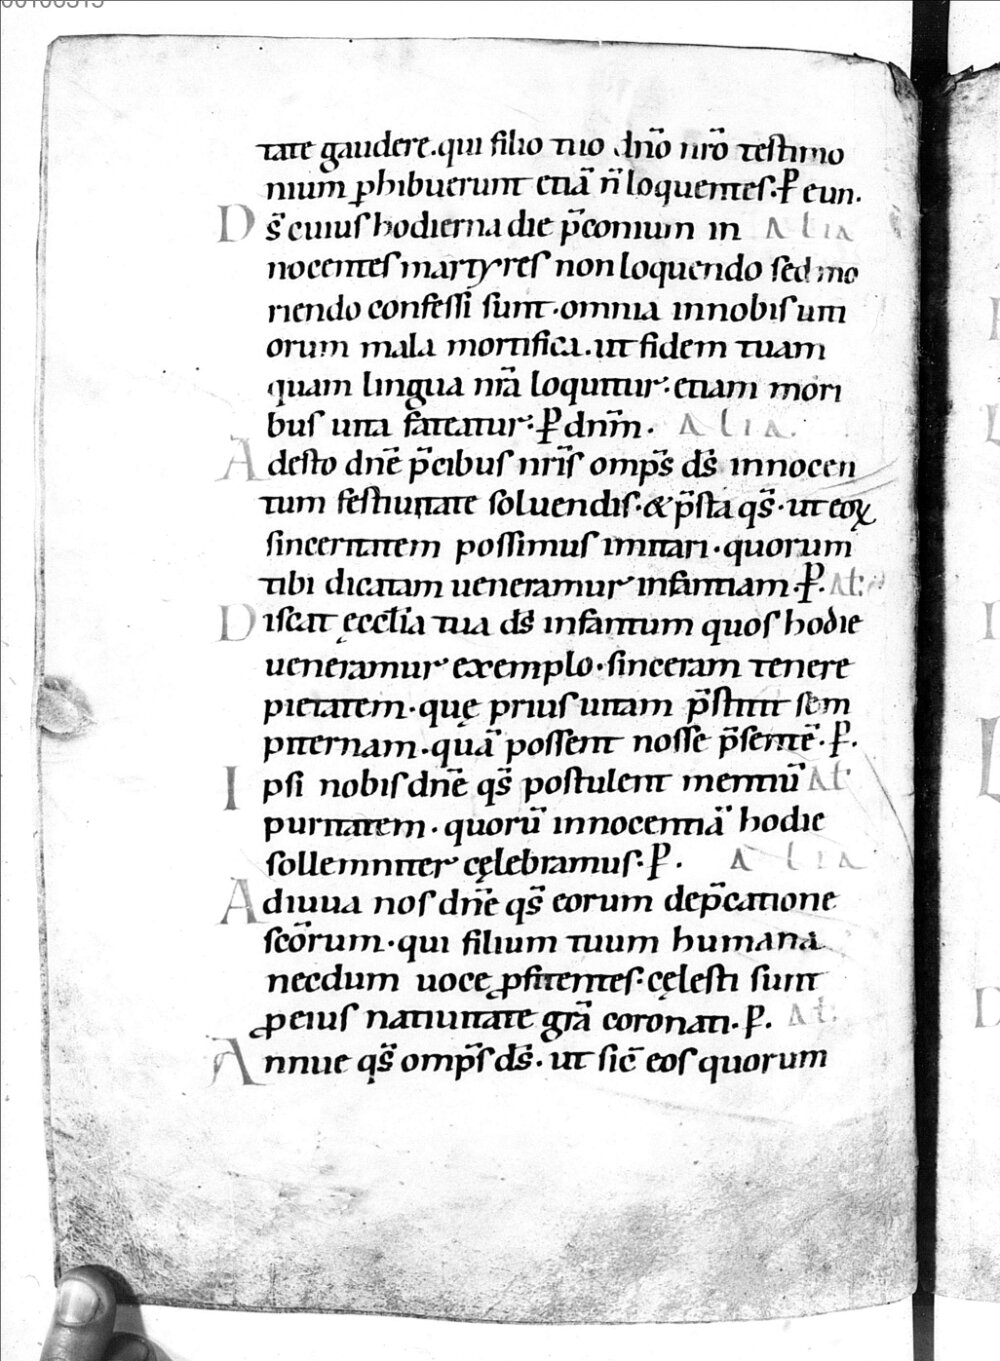 tate gaudere. qui filio tuo dn̄o nr̄o testimo
nium ꝓhibuerunt etiā n̄ loquentes. P̲ eun.
D s̄ cuius hodierna die p̄conium in ALIA
nocentes martyres non loquendo sed mo
riendo confessi sunt. omnia in nobis uiti
orum mala mortifica. ut fidem tuam
quam lingua nr̄a loquitur. etiam mori
bus uita fateatur. P̲ dnm̄. ALIA.
A desto dnē p̄cibus nr̄is omp̄s ds̄ innocen
tum festiuitate soluendis. & p̄sta qs̄. ut eoꝝ
sinceritatem possimus imitari. quorum
tibi dicatam ueneramur infantiam. P̲. At:
D iscat ęccl̄ia tua ds̄ infantum quos hodie
ueneramur exemplo. sinceram tenere
pietatem. quę prius uitam p̄stitit sem
piternam. quā possent nosse p̄sentē. P̲.
I psi nobis dnē qs̄ postulent mentiū At
puritatem. quorū innocentiā hodie
sollemniter cęlebramus. P̲. ALIA
A diuua nos dnē qs̄ eorum dep̄catione
scōrum. qui filium tuum humana
necdum uoce ꝓfitentes. cęlesti sunt
ꝓ eius natiuitate grā coronati. P̲. At.
A nnue qs̄ omp̄s ds̄. ut sic̄ eos quorum